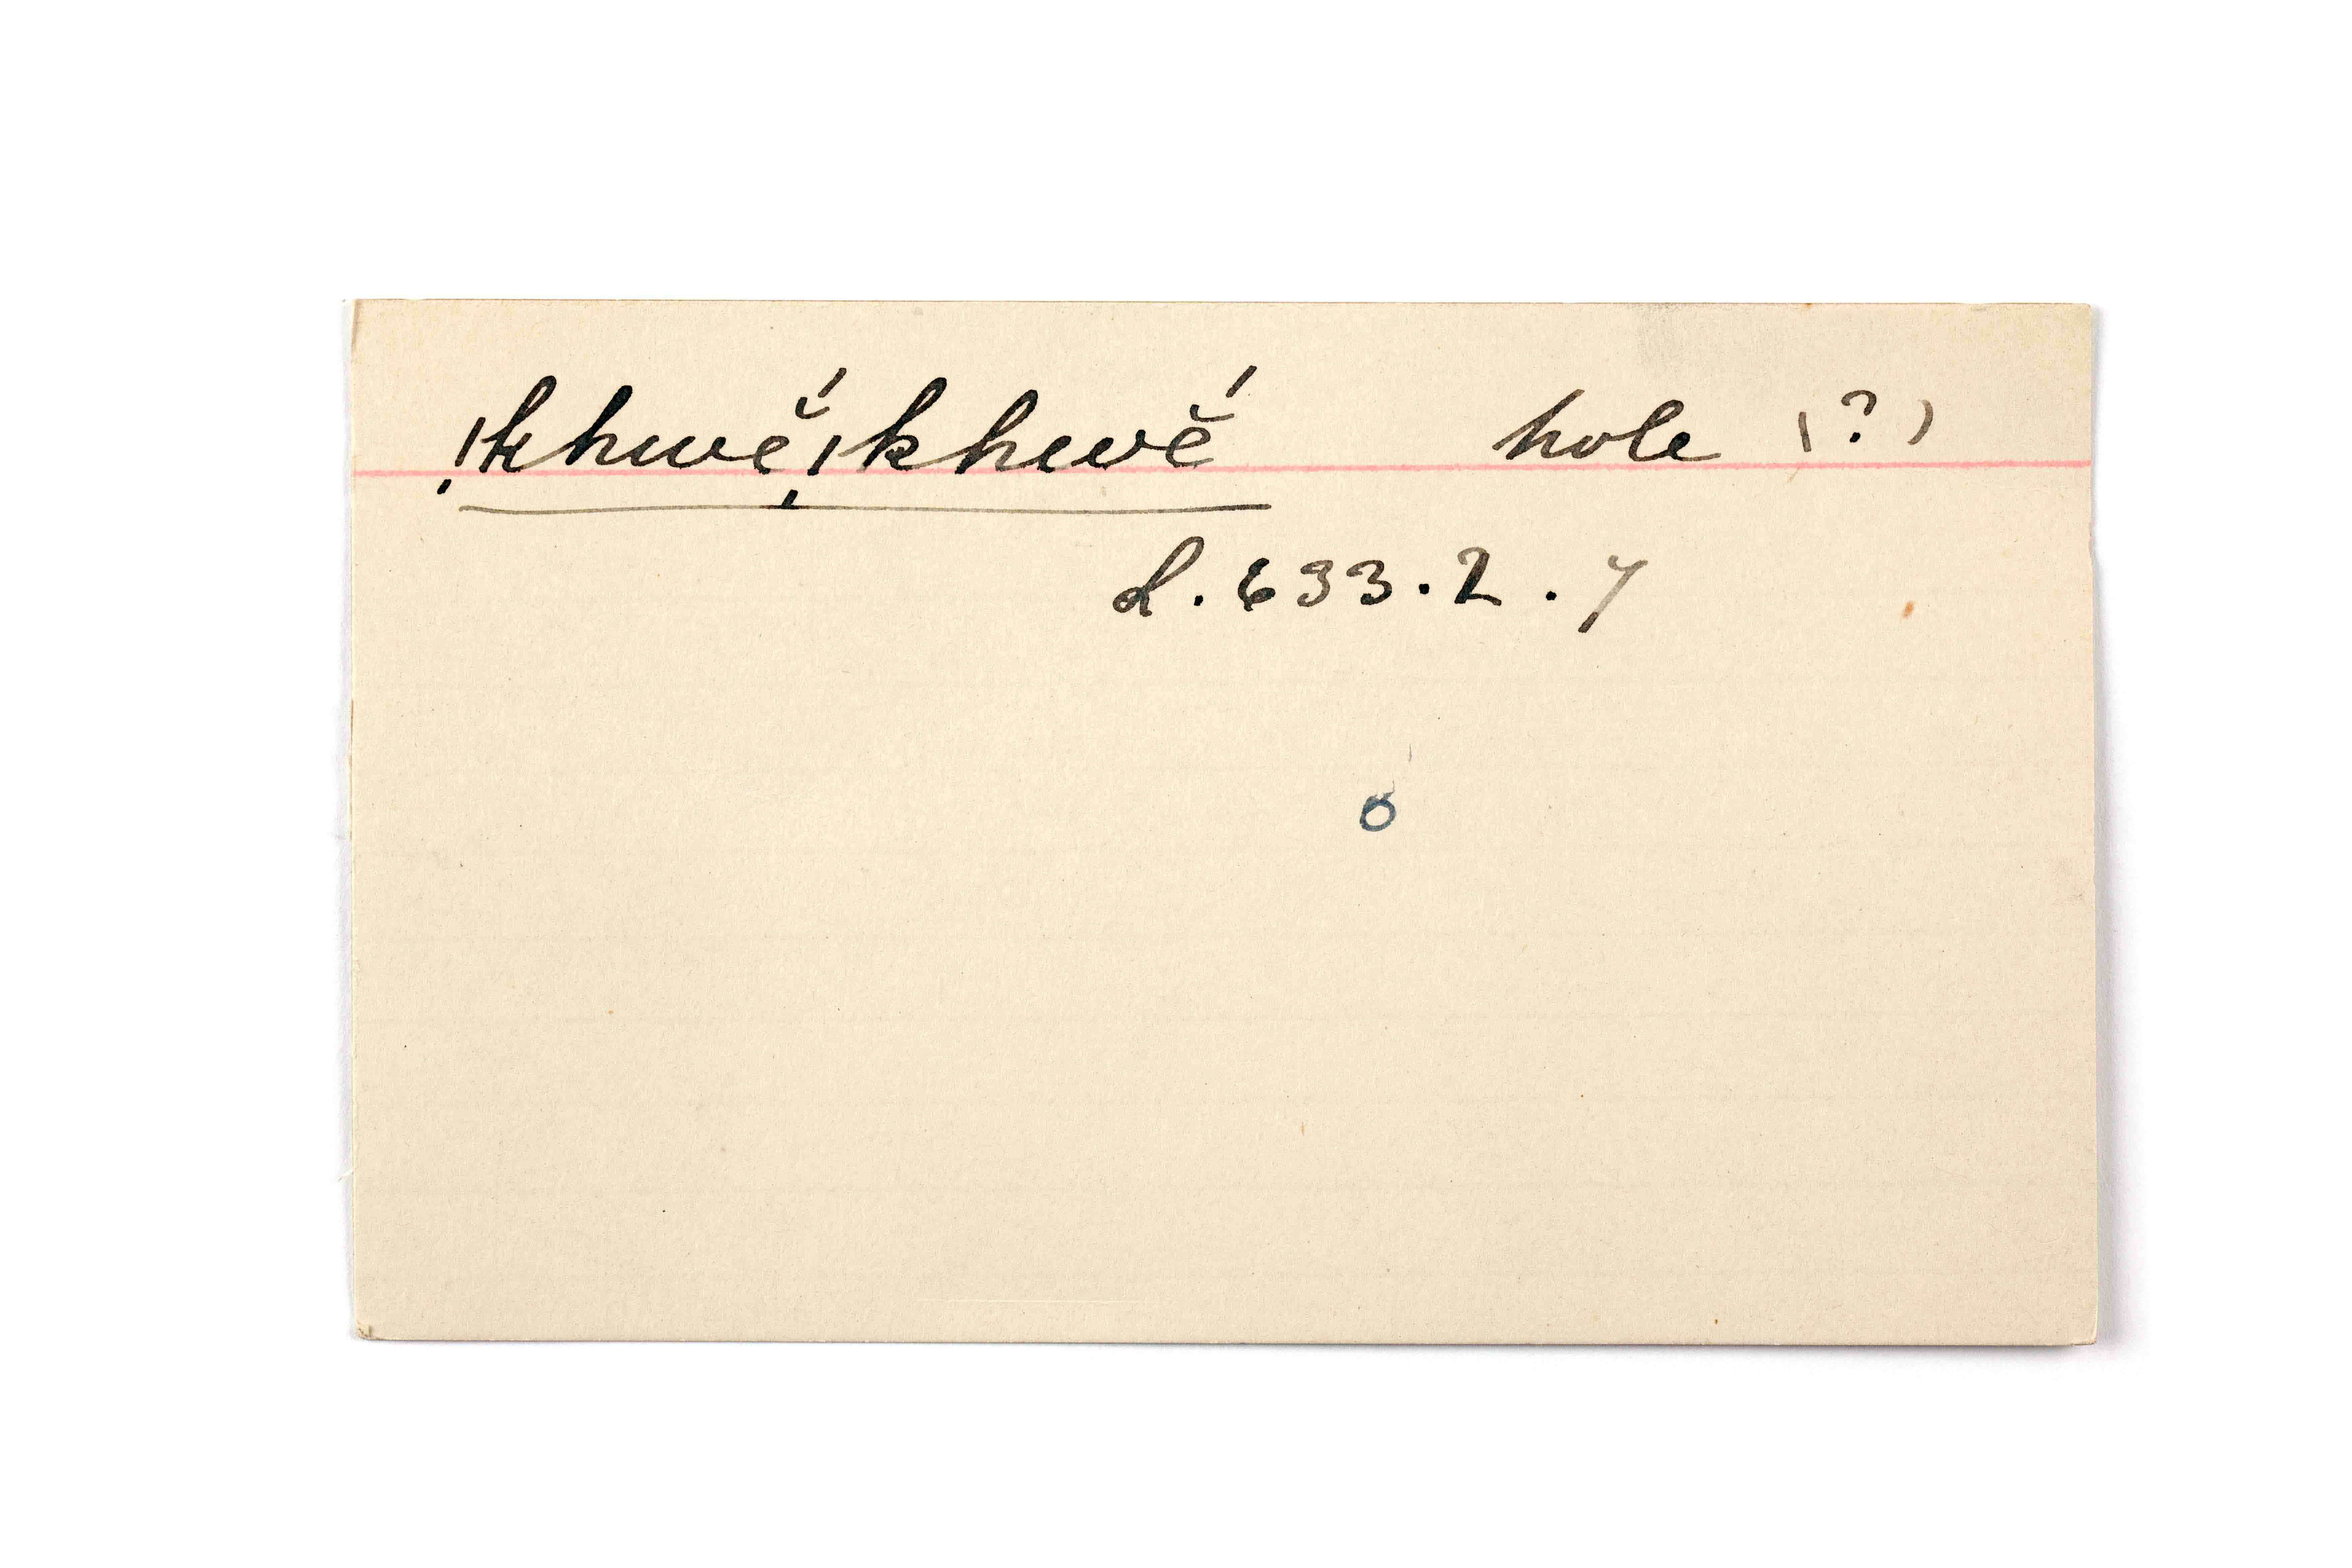 ˌ|khwĕ́ˌ|khwĕ́ hole (?)
L.633.2.7
6